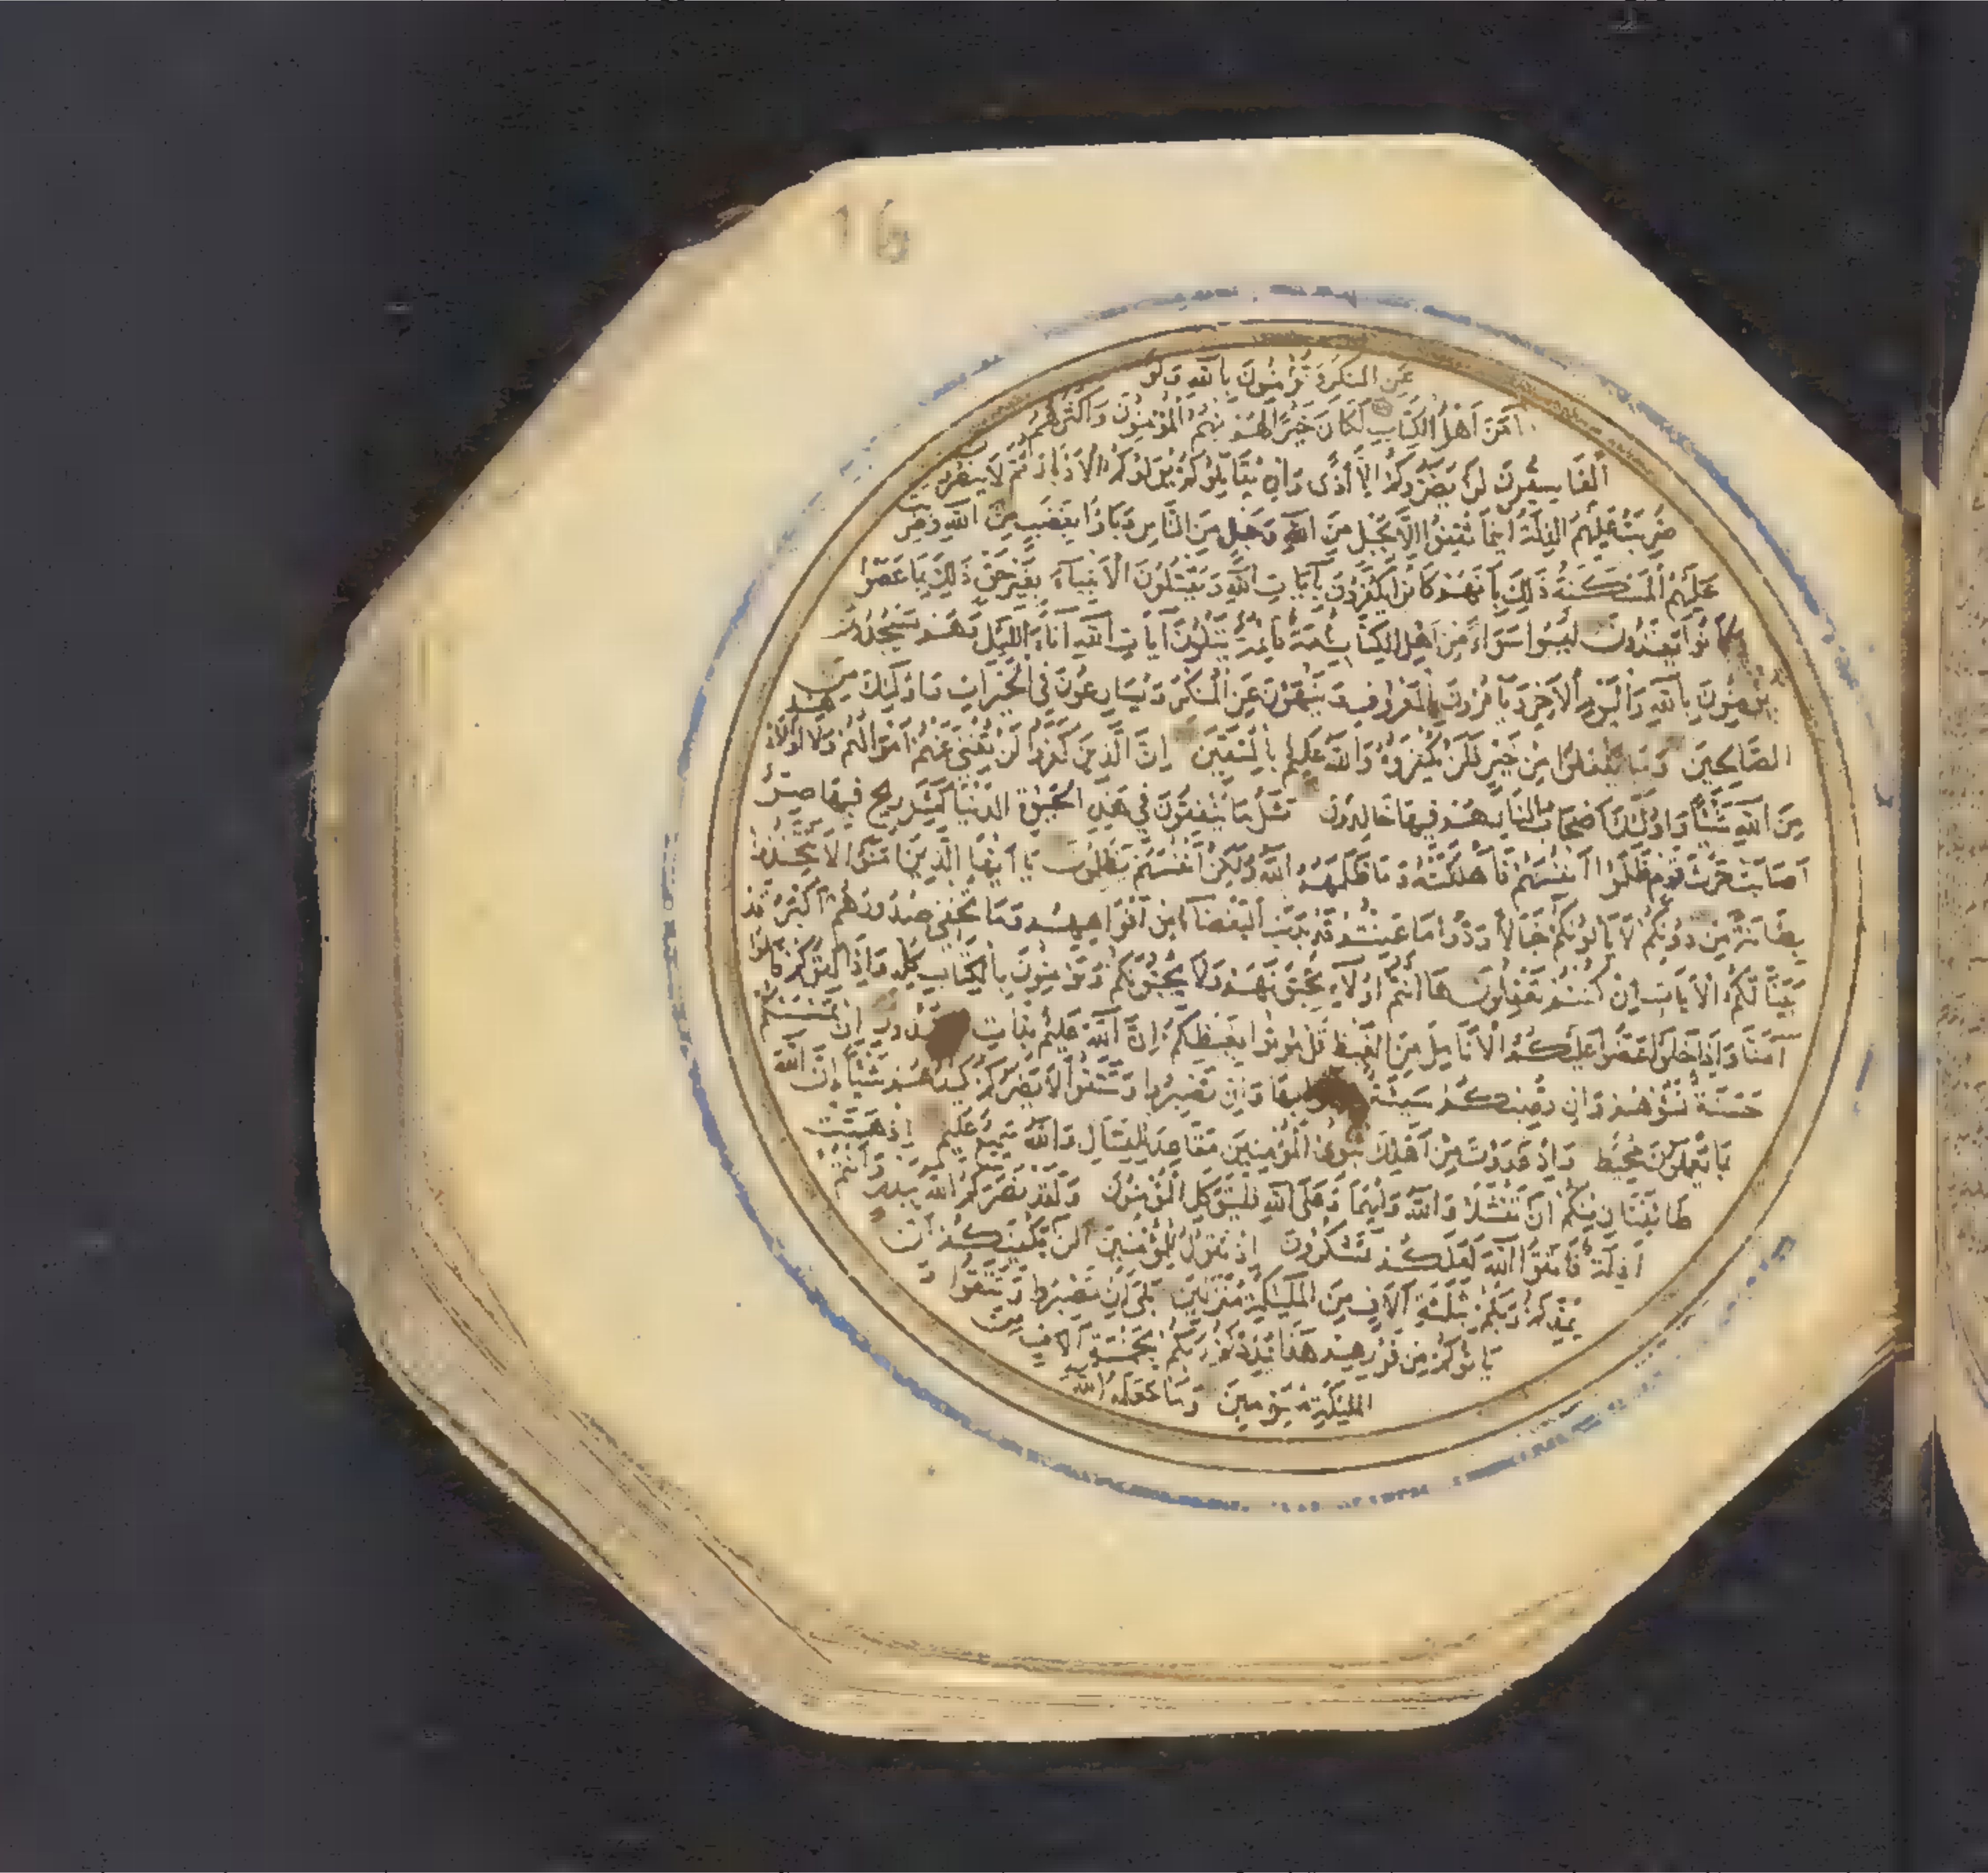 16
عَنِ المُنكَرِ وَتُؤْمِنُونَ بِاللهِ وَلَوْ
آمَنَ اَهْلُ الكِتَابِ لَكَانَ خَيْرًا لَهُمْ مِنْهُمُ المُؤْمِنُونَ وَاَكْثَرُهُمُ
الْفَاسِقُونَ لَنْ يَضُرُّوكُمْ اِلَّا أَذًى وَاِنْ يُقَاتِلُوكُمْ يُوَلُّوكُمُ الْاَدْبَارَ ثُمَّ لَا يُنْصَرُونَ
ضُرِبَتْ عَلَيْهِمُ الذِّلَّةُ اَيْنَمَا ثُقِفُوا اِلَّا بِحَبْلٍ مِنَ اللهِ وَحَبْلٍ مِنَ النَّاسِ وَبَاؤُا بِغَضَبٍ مِنَ اللهِ وَضُرِبَتْ
عَلَيْهِمُ الْمَسْكَنَةُ ذَلِكَ بِاَنَّهُمْ كَانُوا يَكْفُرُونَ بِآيَاتِ اللهِ وَيَقْتُلُونَ الْاَنْبِيَاءَ بِغَيْرِ حَقٍّ ذَلِكَ بِمَا عَصَوْا
وَكَانُوا يَعْتَدُونَ لَيْسُوا سَوَاءً مِنْ اَهْلِ الكِتَابِ اُمَّةٌ قَائِمَةٌ يَتْلُونَ آيَاتِ اللهِ آنَاءَ اللَّيْلِ وَهُمْ يَسْجُدُونَ
يُؤْمِنُونَ بِاللهِ وَالْيَوْمِ الْاٰخِرِ وَيَأْمُرُونَ بِالْمَعْرُوفِ وَيَنْهَوْنَ عَنِ الْمُنْكَرِ وَيُسَارِعُونَ فِي الْخَيْرَاتِ وَاُولَئِكَ مِنَ
الصَّالِحِينَ وَمَا يَفْعَلُوا مِنْ خَيْرٍ فَلَنْ يُكْفَرُوهُ وَاللهُ عَلِيمٌ بِالْمُتَّقِينَ اِنَّ الَّذِينَ كَفَرُوا لَنْ تُغْنِيَ عَنْهُمْ اَمْوَالُهُمْ وَلَا اَوْلَادُهُمْ
مِنَ اللهِ شَيْئًا وَاُولَئِكَ اَصْحَابُ النَّارِ هُمْ فِيهَا خَالِدُونَ مَثَلُ مَا يُنْفِقُونَ فِي هَذِهِ الْحَيٰوةِ الدُّنْيَا كَمَثَلِ رِيحٍ فِيهَا صِرٌّ
اَصَابَتْ حَرْثَ قَوْمٍ ظَلَمُوا اَنْفُسَهُمْ فَاَهْلَكَتْهُ وَمَا ظَلَمَهُمُ اللهُ وَلَكِنْ اَنْفُسَهُمْ يَظْلِمُونَ يَا اَيُّهَا الَّذِينَ آمَنُوا لَا تَتَّخِذُوا
بِطَانَةً مِنْ دُونِكُمْ لَا يَأْلُونَكُمْ خَبَالًا وَدُّوا مَا عَنِتُّمْ قَدْ بَدَتِ الْبَغْضَاءُ مِنْ اَفْوَاهِهِمْ وَمَا تُخْفِي صُدُورُهُمْ اَكْبَرُ قَدْ
بَيَّنَّا لَكُمُ الْاٰيَاتِ اِنْ كُنْتُمْ تَعْقِلُونَ هَا اَنْتُمْ اُولَاءِ تُحِبُّونَهُمْ وَلَا يُحِبُّونَكُمْ وَتُؤْمِنُونَ بِالْكِتَابِ كُلِّهِ وَاِذَا لَقُوكُمْ قَالُوا
آمَنَّا وَاِذَا خَلَوْا عَضُّوا عَلَيْكُمُ الْاَنَامِلَ مِنَ الْغَيْظِ قُلْ مُوتُوا بِغَيْظِكُمْ اِنَّ اللهَ عَلِيمٌ بِذَاتِ الصُّدُورِ اِنْ تَمْسَسْكُمْ
حَسَنَةٌ تَسُؤْهُمْ وَاِنْ تُصِبْكُمْ سَيِّئَةٌ يَفْرَحُوا بِهَا وَاِنْ تَصْبِرُوا وَتَتَّقُوا لَا يَضُرُّكُمْ كَيْدُهُمْ شَيْئًا اِنَّ اللهَ
بِمَا يَعْمَلُونَ مُحِيطٌ وَاِذْ غَدَوْتَ مِنْ اَهْلِكَ تُبَوِّئُ الْمُؤْمِنِينَ مَقَاعِدَ لِلْقِتَالِ وَاللهُ سَمِيعٌ عَلِيمٌ اِذْ هَمَّتْ
طَائِفَتَانِ مِنْكُمْ اَنْ تَفْشَلَا وَاللهُ وَلِيُّهُمَا وَعَلَى اللهِ فَلْيَتَوَكَّلِ الْمُؤْمِنُونَ وَلَقَدْ نَصَرَكُمُ اللهُ بِبَدْرٍ وَاَنْتُمْ
اَذِلَّةٌ فَاتَّقُوا اللهَ لَعَلَّكُمْ تَشْكُرُونَ اِذْ تَقُولُ لِلْمُؤْمِنِينَ اَلَنْ يَكْفِيَكُمْ اَنْ
يُمِدَّكُمْ رَبُّكُمْ بِثَلٰثَةِ آلَافٍ مِنَ الْمَلٰئِكَةِ مُنْزَلِينَ بَلَى اِنْ تَصْبِرُوا وَتَتَّقُوا وَ
يَأْتُوكُمْ مِنْ فَوْرِهِمْ هَذَا يُمْدِدْكُمْ رَبُّكُمْ بِخَمْسَةِ آلَافٍ مِنَ
الْمَلٰئِكَةِ مُسَوِّمِينَ وَمَا جَعَلَهُ اللهُ